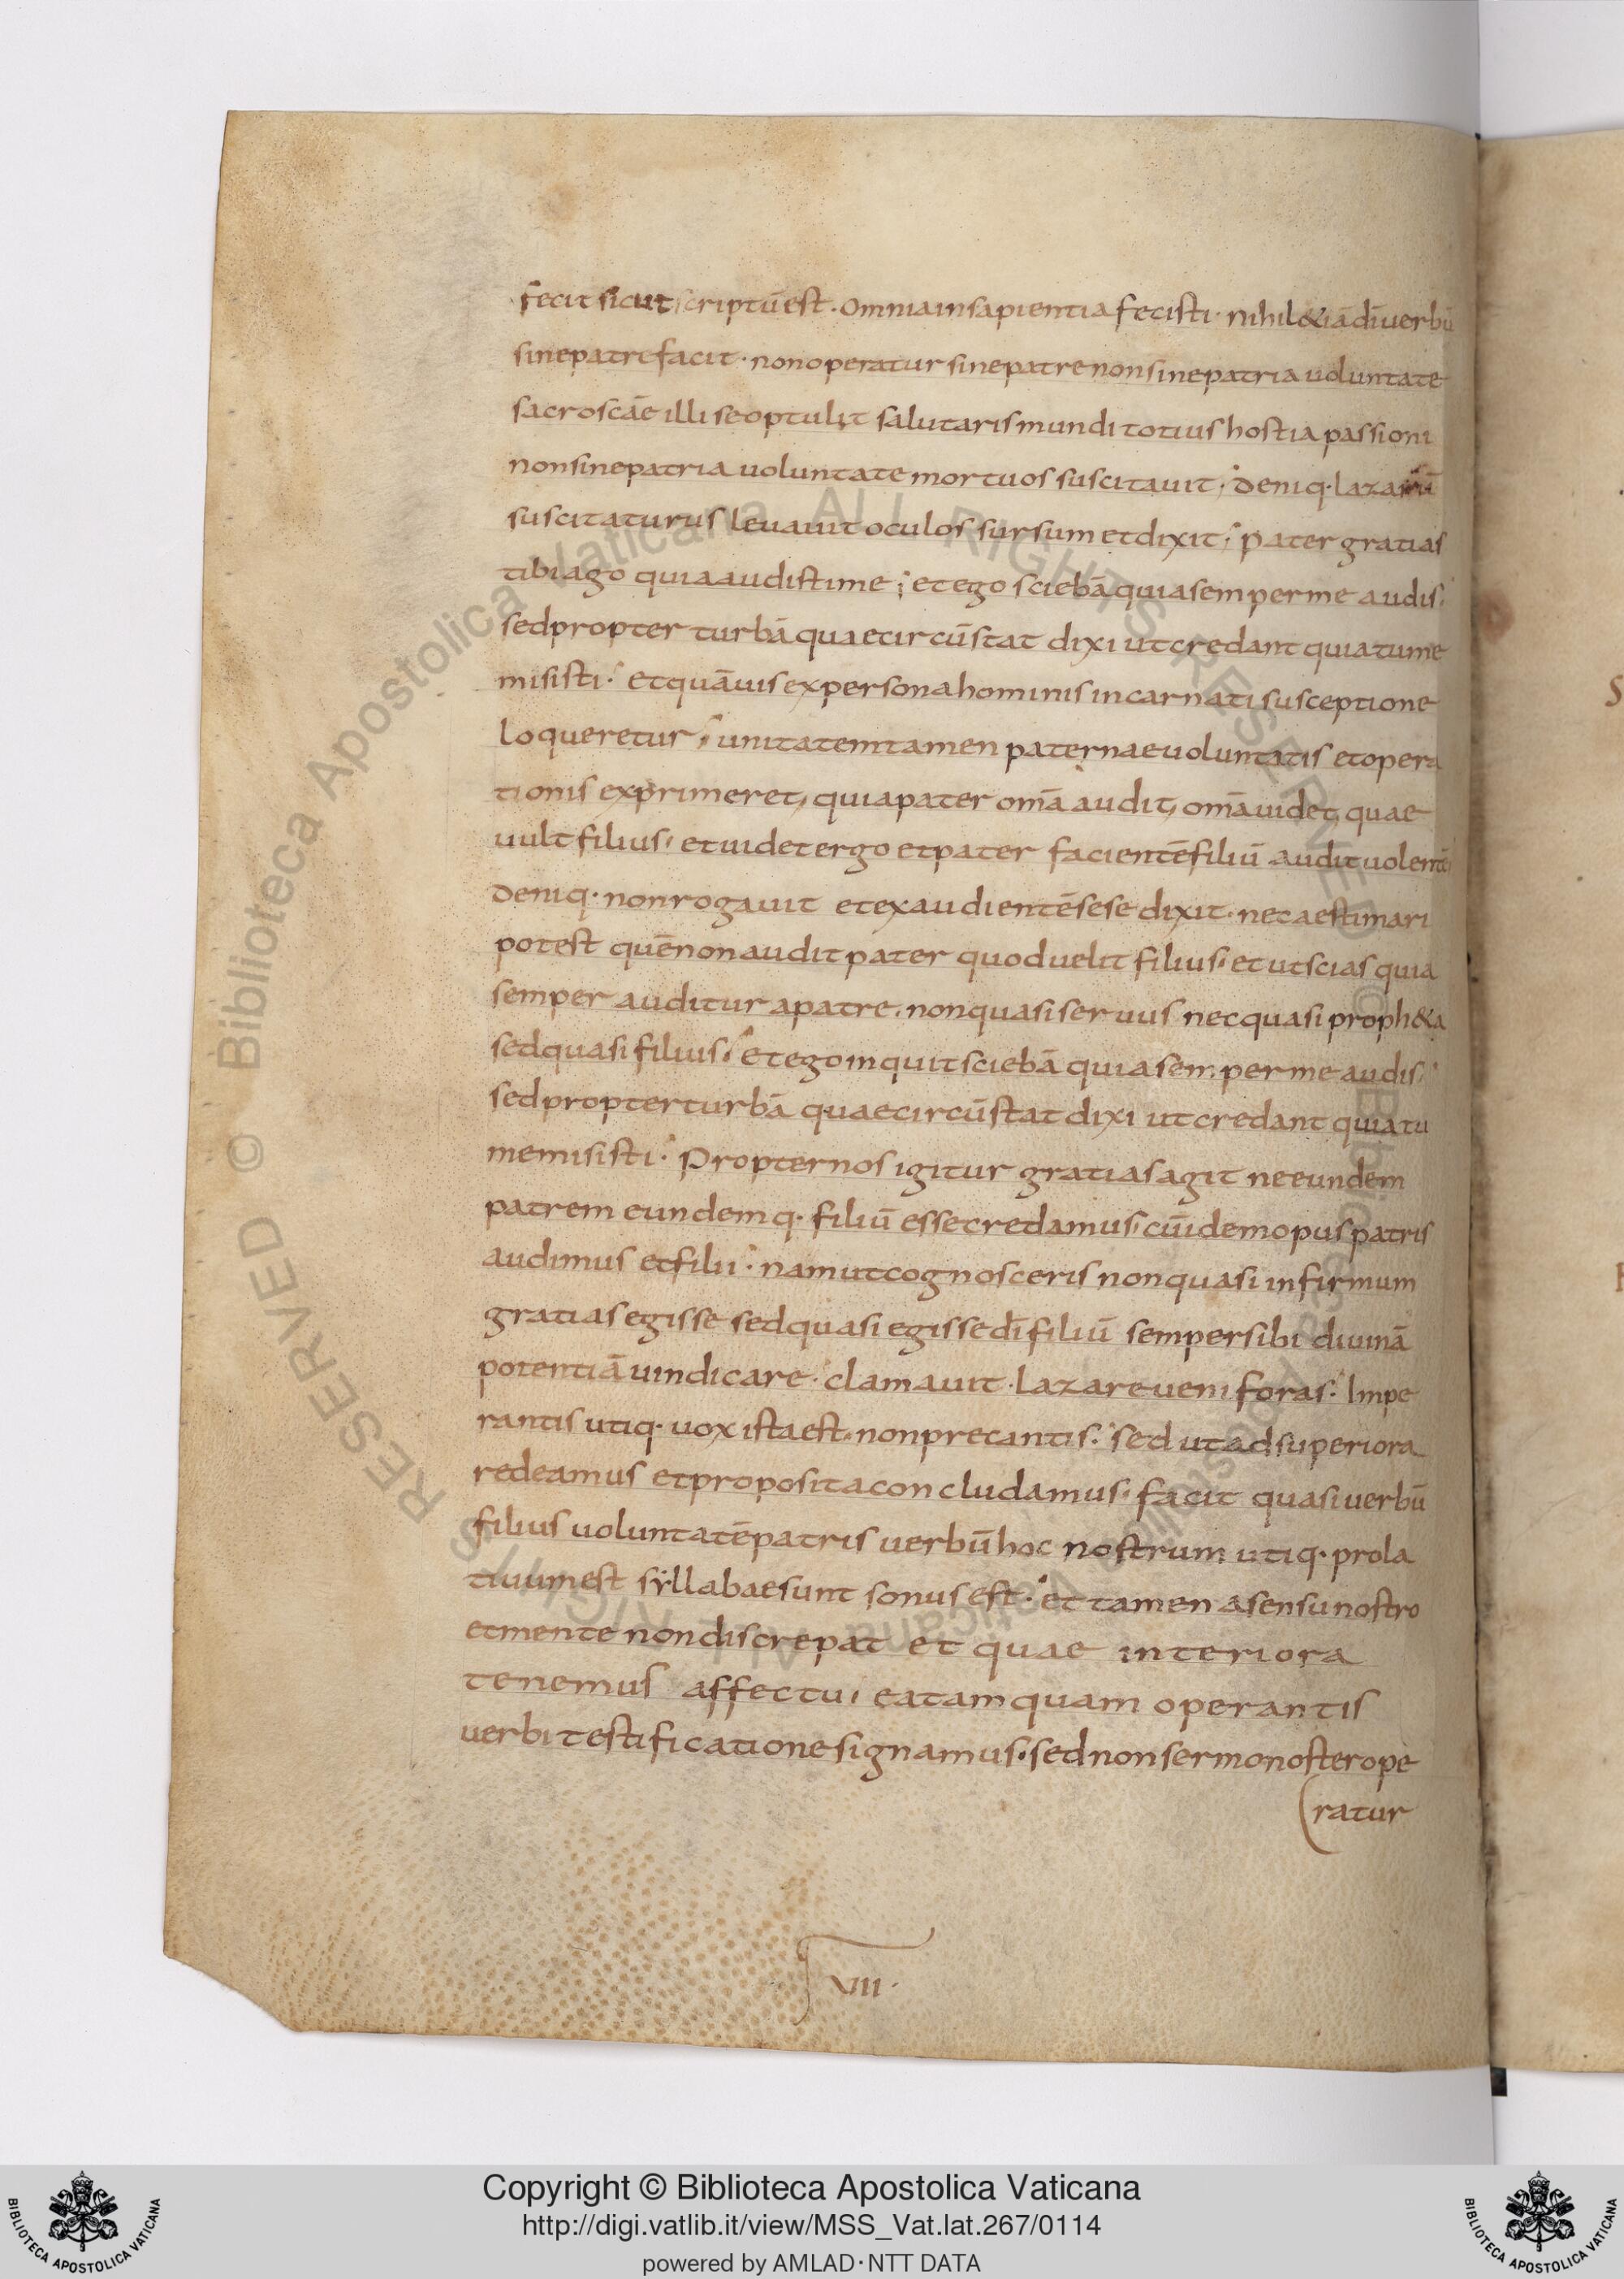 fecit sicut scriptūest. Omniainsapientia fecisti. nihil&iādīverbū
sinepatrefacit. nonoperatur sinepatrenonsinepatria uoluntate
sacroscāe illi seoptulit salutarismundi totius hostia passioni
nonsinepatria uoluntate mortuos suscitauit; deniq. lazarū
suscitaturus leuauit oculos sursum etdixit; pater gratias
tibiago quiaaudistime; etego sciebā quiasemperme audis;
sedpropter turbā quaecircūstat dixi utcredant quiatume
misisti. etquāuis expersonahominis incarnati susceptione
loqueretur; unitatemtamen paternaeuoluntatis etopera
tionis exprimeret, quiapater omā audit, omāuidet, quae
uult filius, etuidetergo etpater facientēfiliū audituolentē
deniq. nonrogauit etexaudientēsese dixit. necaestimari
potest quēnonaudit pater quoduelit filius. etutscias quia
semper auditur apatre. nonquasiseruus necquasi proph&a
sedquasi filius; etegoinquit sciebā quiasemperme audis;
sedpropterturbā quaecircūstat dixi utcredant quiatu
memisisti. Propternos igitur gratiasagit neeundem
patrem eundemq. filiū essecredamus, cūidemopus patris
audimus etfilii. namutcognosceris nonquasi infirmum
gratiasegisse sedquasi egissedīfiliū sempersibi diuinā
potentiāuindicare. clamauit. lazareueni foras. Impe
rantis utiq. uox istaest. nonprecantis. sed utadsuperiora
redeamus etpropositaconcludamus. facit quasiuerbū
filius uoluntatēpatris uerbūhoc nostrum utiq. prola
tiuumest syllabaesunt sonus est. et tamen asensunostro
etmente nondiscrepat et quae interiora
tenemus affectu, eatamquam operantis
uerbi testificationesignamus. sednonsermonosterope
ratur
VII.
S
Copyright © Biblioteca Apostolica Vaticana
http://digi.vatlib.it/view/MSS_Vat.lat.267/0114
powered by AMLAD · NTT DATA
BIBLIOTECA APOSTOLICA VATICANA
BIBLIOTECA APOSTOLICA VATICANA
RESERVED © Biblioteca Apostolica Vaticana ALL RIGHTS RESERVED © Biblioteca Apostolica Vaticana ALL RIGHTS